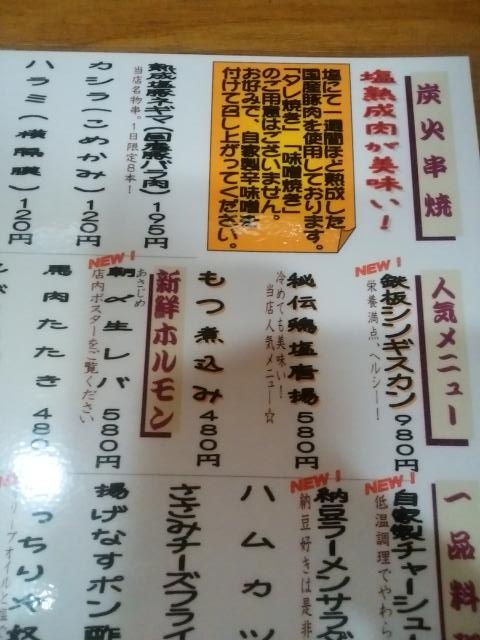 炭火串焼
塩熟成肉が美味い！
塩にて一週間ほど熟成した
国産豚肉を使用しております。
「タレ焼き」「味噌焼き」
のご用意はございません。
お好みで、自家製辛味噌を
付けて召し上がってください。
熟成塩豚ネギマ(国産豚バラ肉) 195円
当店名物串。1日限定8本！
カシラ(こめかみ) 120円
ハラミ(横隔膜) 120円
人気メニュー
NEW！
鉄板ジンギスカン 980円
栄養満点、ヘルシー！
秘伝鶏塩唐揚 580円
冷めても美味い！
当店人気メニュー☆
もつ煮込み 480円
新鮮ホルモン
あさじめ
NEW！
朝〆生レバ 580円
店内ポスターをご覧ください
馬肉たたき 480
一品料
NEW！
自家製チャーシュ
低温調理でやわら
NEW！
納豆ラーメンサラダ
納豆好きは是非
ハムカツ
ささみチーズフライ
揚げなすポン酢
NEW！